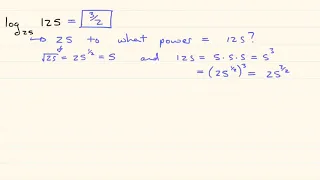 log₂₅ 125 = 3/2
↪ 25 to what power = 125?
√25 = 25^(1/2) = 5 and 125 = 5·5·5 = 5³
= (25^(1/2))³ = 25^(3/2)